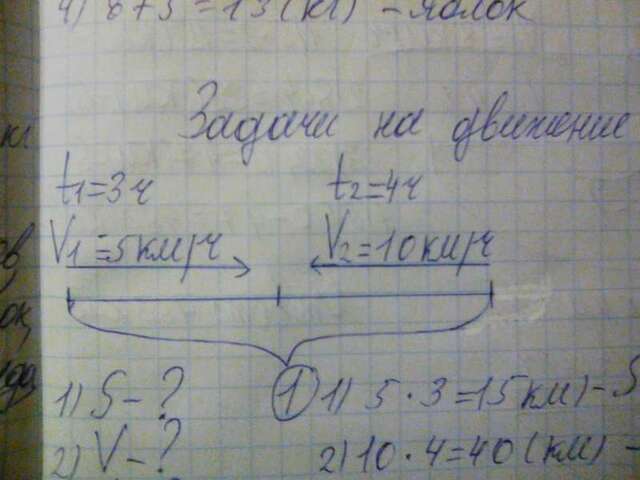 4) 8+5=13(кг) - яблок
Задачи на движение
t1=3ч t2=4ч
V1=5км/ч V2=10км/ч
1) S-? ① 1) 5·3=15км)-S
2) V-? 2) 10·4=40(км)-